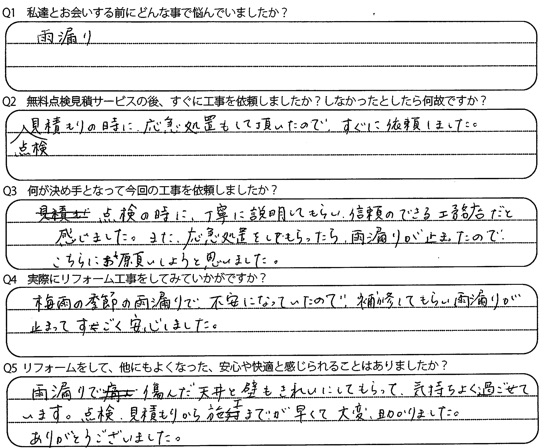 Q1 私達とお会いする前にどんな事で悩んでいましたか？
雨漏り
Q2 無料点検見積サービスの後、すぐに工事を依頼しましたか？しなかったとしたら何故ですか？
見積もりの時に、応急処置もして頂いたので、すぐに依頼しました。
点検
Q3 何が決め手となって今回の工事を依頼しましたか？
点検の時に、丁寧に説明してもらい、信頼のできる工務店だと
感じました。また、応急処置をしてもらったら、雨漏りが止まったので、
こちらにお願いしようと思いました。
Q4 実際にリフォーム工事をしてみていかがですか？
梅雨の季節の雨漏りで、不安になっていたので、補修してもらい雨漏りが
止まってすごく安心しました。
Q5 リフォームをして、他にもよくなった、安心や快適と感じられることはありましたか？
雨漏りで傷んだ天井と壁もきれいにしてもらって、気持ちよく過ごせて
います。点検、見積もりから施工までが早くて大変、助かりました。
ありがとうございました。